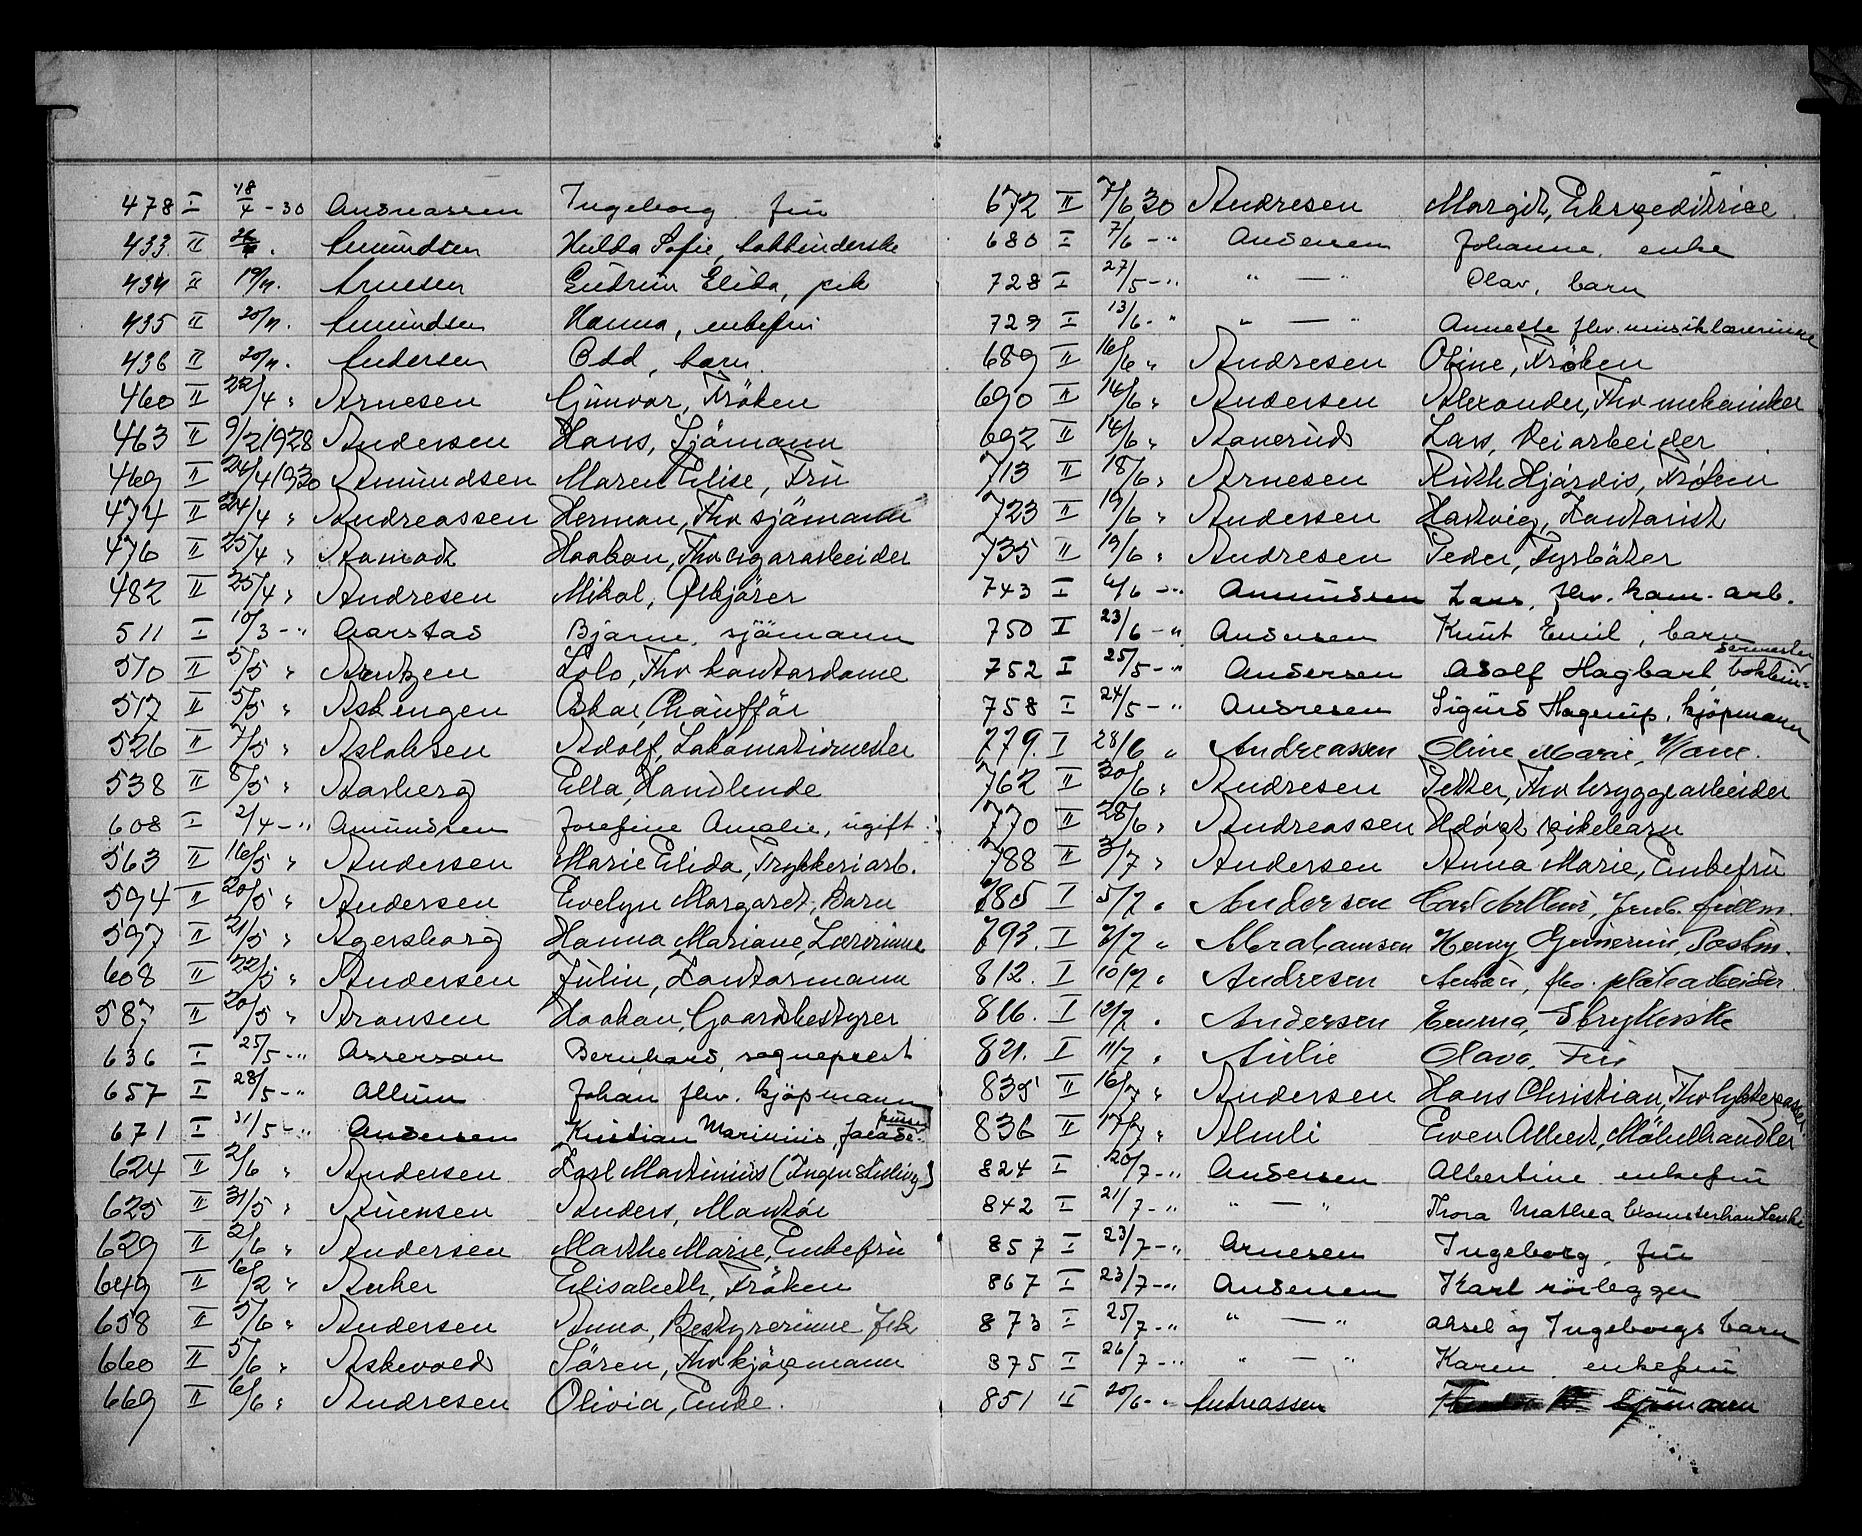 478 I 18/4 - 30 Andreassen Ingeborg fru
433. II Amundsen Hulda Sofie, bokbinderske
434 II 19/4. Arnesen Gudrun Elida, pik
435 II 20/4. Amundsen Hanna, enkefru
436 II 20/4. Andersen Odd, barn.
460 II 22/4 " Arnesen Gunvor, Fröken
463 II 9/2 1928 Andersen Hans, Sjömann
469 II 24/4 1930 Amundsen Maren Elise, Fru
474 II 24/4 " Andreassen Herman, Fhv sjömann
476 II 25/4 " Aamodt Haakon, Fhv cigararbeider
482 II 25/4 " Andresen Mikal, Ølkjörer
511 I 10/3 - " Aarstad Bjarne, sjömann
510 II 5/5 " Arntzen Lolo, Fhv kontordame
517 II 5/5 " Askengen Oskar, Chaufför
526 II 7/5 " Aslaksen Adolf, Lokomotivmester
538 II 8/5 " Aasberg Ella, Handlende
608 I 2/4 - " Amundsen Josefine Amalie, ugift.
563 II 16/5 " Andersen Marie Elida, Trykkeriarb.
594 II 20/5 " Andersen Evelyn Margaret, Barn
597 II 21/5 " Agersborg Hanna Mariane, Lærerinne
608 II 22/5 " Andersen Julin, Kontormann
587 II 20/5 " Aronsen Haakon, Gaardsbestyrer
636 I 25/5 - " Asserson Bernhard, sogneprest
657 I 28/5 - " Allum Johan fhv. kjöpmann
671 I 31/5 - " Andersen Kristian Marinius,
624 II 2/6 " Andersen Karl Martinius (Ingen Stilling)
625 II 31/5 " Anders, Montör
629 II 2/6 " Andersen Marthe Marie, Enkefru
649 II 6/2 " Anker Elisabeth, Fröken
658 II 5/6 " Andersen Anna, Bestyrerinne frk
660 II 5/6 " Askevold Sören, Fhv kjöpmann
669 II 6/6 " Andresen Olivia, Enke.
672 II 7/6 30 Andresen Margit, Ekspeditrice
680 I 7/6 - " Andersen Johanne, enke
728 I 27/5 - " " — " Olav, barn
729 I 13/6 - " " — " Annette fhv. musiklærerinne
689 II 16/6 " Andresen Oline, Fröken
690 II 16/6 " Andersen Alexander, Fhv mekaniker
692 II 14/6 " Aanerud Lars, Veiarbeider
713 II 18/6 " Arnesen Ruth Hjördis, Fröken
723 II 19/6 " Andersen Hartvig, Kontorist
735 II 19/6 " Andresen Peder, Fyrböter
743 I /6 - " Amundsen Lars, fhv. kom. arb.
750 I 23/6 - " Andersen Knut Emil, barn
752 I 25/5 - " Andersen Adolf Hagbart bokbin-
dermester
758 I 24/5 - " Andresen Sigurd Hagerup, kjöpmann
779. I 28/6 " Andreassen Oline Marie,
762 II 30/6 " Andresen Petter, Fhv bryggearbeider
770 II 28/6 " Andreassen Udöpt pikebarn
788 II 3/7 " Andersen Anna Marie, Enkefru
785 I 5/7 " Andersen Carl
793. I 7/7 " Abrahamsen Henry
812. I 10/7 " Andresen Anton, fhv. platearbeider.
816. I 12/7 " Andersen Emma, Strykerske
821. I 11/7 " Aulie Olava, Fru
835 II 16/7 " Andersen Hans Christian, Fhv lyktepasser
836 II 17/7 " Almli Even Albert, Möbelhandler
824 I 20/7 - " Andersen Albertine enkefru
842 I 21/7 - " " — " Thora Mathea blomsterhandlerske
857 I 23/7 - " Arnesen Ingeborg, fru
867 I 23/7 - " Andersen Karl rörlegger
873 I 25/7 - " " — " Aksel og Ingeborgs barn
875 I 26/7 - " " — " Karen enkefru
851 II 20/6 - " Andreassen sjömann